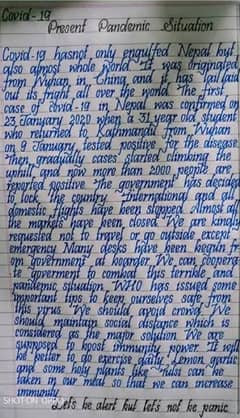 Covid-19
Present Pandemic Situation
Covid-19 hasnot only engulfed Nepal but
also almost whole world. It was originated
from Wuhan in China and it has laid
out its fright all over the world. The first
case of covid-19 in Nepal was confirmed on
23 January, 2020 when a 31 year old student
who returned to Kathmandu from Wuhan
on 9 January, tested positive for the disease.
Then gradually cases started climbing the
uphill and now more than 2000 people are
reported positive. The government has decided
to lock the country. International and all
domestic flights have been stopped. Almost all
the markets have been closed. We are kindly
requested not to travel or go outside except
emergency. Many desks have been begun fr
om government at boarder. We can coopera
te goverment to combat this terrible and
pandemic situation. WHO has issued some
important tips to keep ourselves safe from
this virus. We should avoid crowd. We
should maintain social distance which is
considered as the major solution. We are
supposed to boost immunity power. It will
be better to do exercise daily. Lemon, garlic
and some holy plants like tulsi can be
taken in our meal so that we can increase
immunity.
Let's be alert but let's not be panic.
SHOT ON